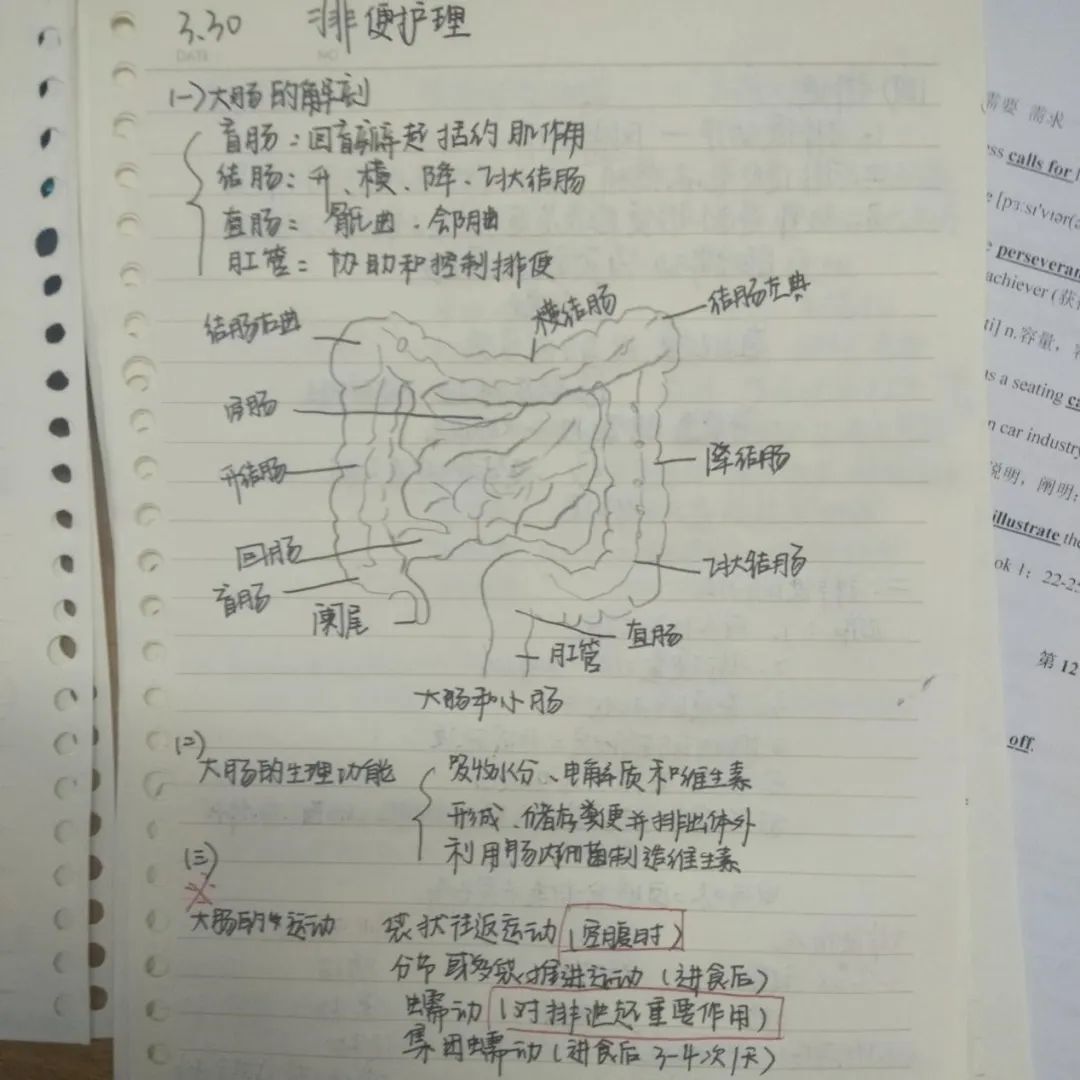 3.30 排便护理
DATE
NO
(一)大肠的解剖
盲肠：回盲瓣起括约肌作用
结肠：升、横、降、乙状结肠
直肠：骶曲.会阴曲
肛管：协助和控制排便
结肠右曲
横结肠
结肠左曲
空肠
升结肠
降结肠
回肠
盲肠
乙状结肠
阑尾
直肠
肛管
大肠和小肠
(二)
大肠的生理功能
吸收水分、电解质和维生素
形成.储存粪便并排出体外
利用肠内细菌制造维生素
(三)
大肠的运动
袋状往返运动(空腹时)
分节或多袋推进运动(进食后)
蠕动(对排泄起重要作用)
集团蠕动(进食后3-4次/天)
需要 需求
ess calls for
e [pɜːsɪ'vɪər(
e perseveran
achiever (获
ti] n.容量，
as a seating ca
n car industry
说明，阐明；
illustrate the
ok 1：22-25
第 12
off.